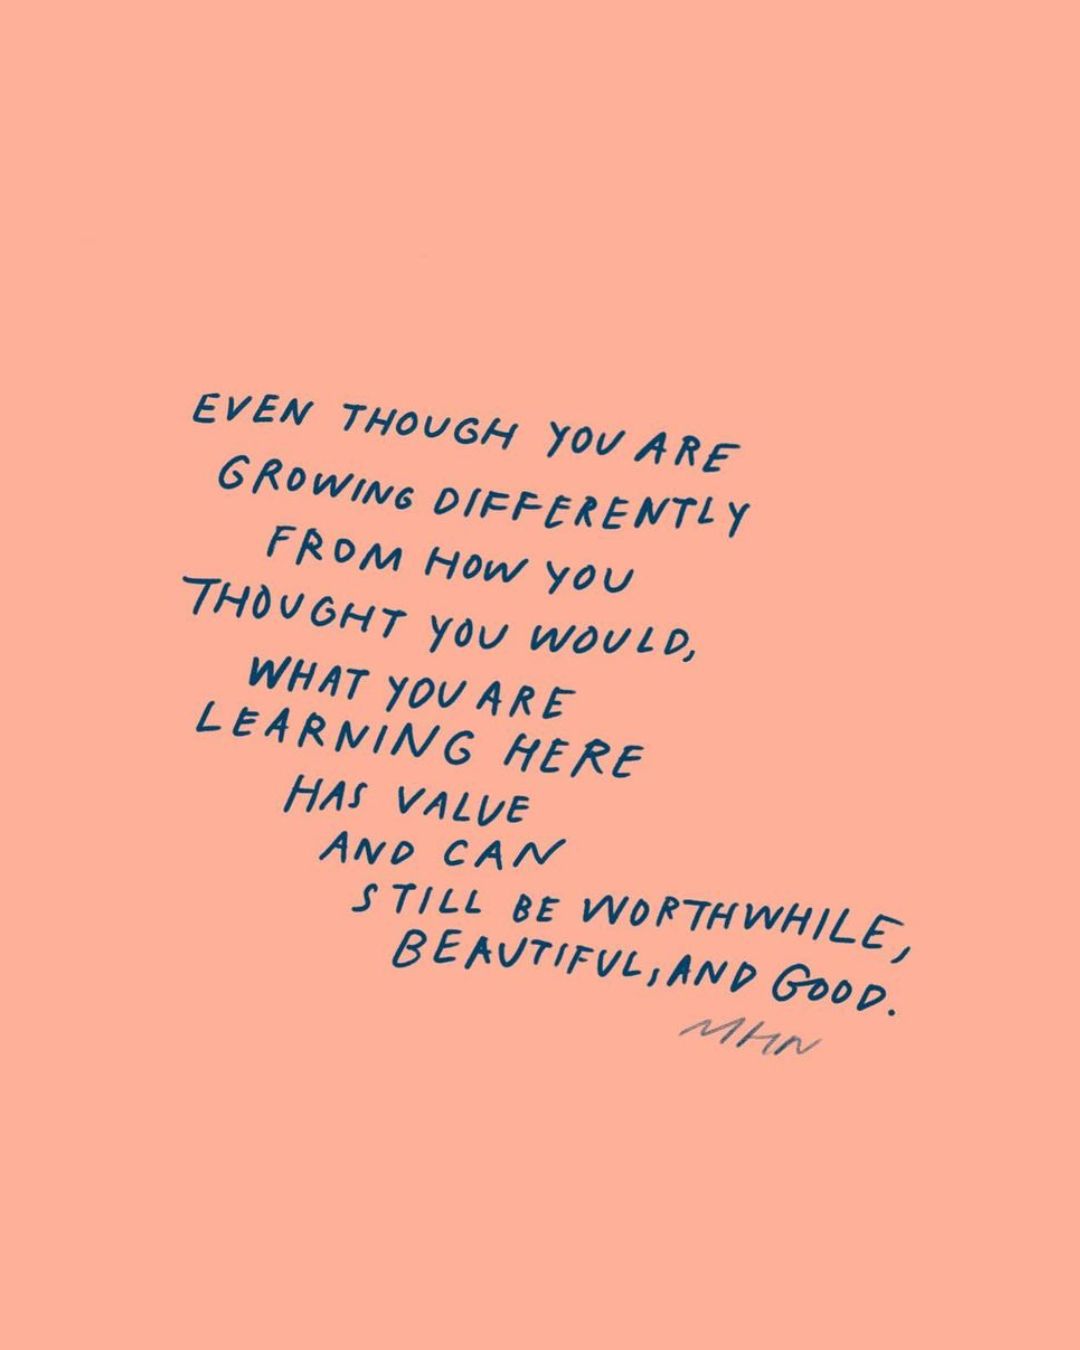 EVEN THOUGH YOU ARE
GROWING DIFFERENTLY
FROM HOW YOU
THOUGHT YOU WOULD,
WHAT YOU ARE
LEARNING HERE
HAS VALUE
AND CAN
STILL BE WORTHWHILE,
BEAUTIFUL, AND GOOD.
MHN